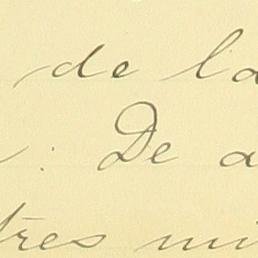 de la
: De a
tres mi